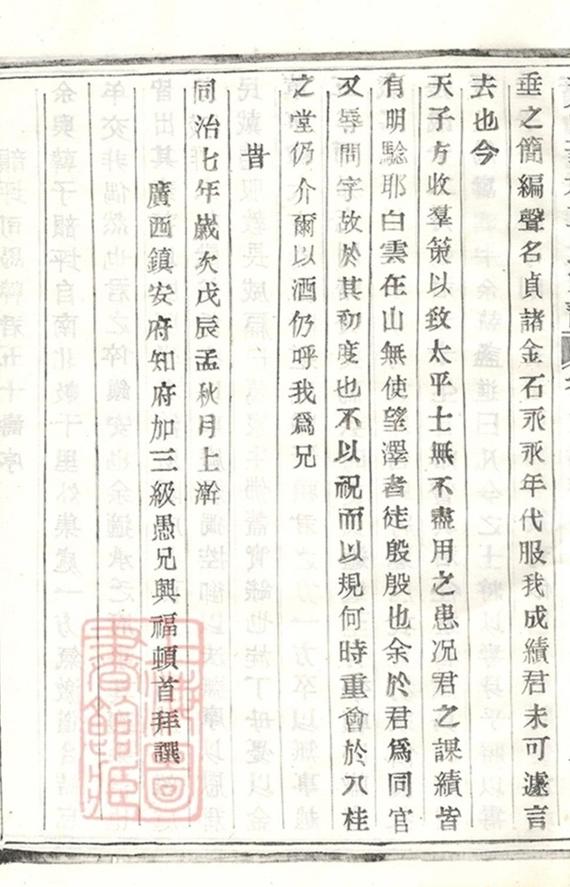 垂之簡編聲名貞諸金石永永年代服我成績君未可遽言
去也今
天子方收羣策以致太平士無不盡用之患况君之課績皆
有明驗耶白雲在山無使望澤者徒殷殷也余於君爲同官
又辱問字故於其初度也不以祝而以規何時重會於八桂
之堂仍介爾以酒仍呼我爲兄
昔
同治七年歲次戊辰孟秋月上澣
廣西鎮安府知府加三級愚兄興福頓首拜譔
上海圖
書館藏